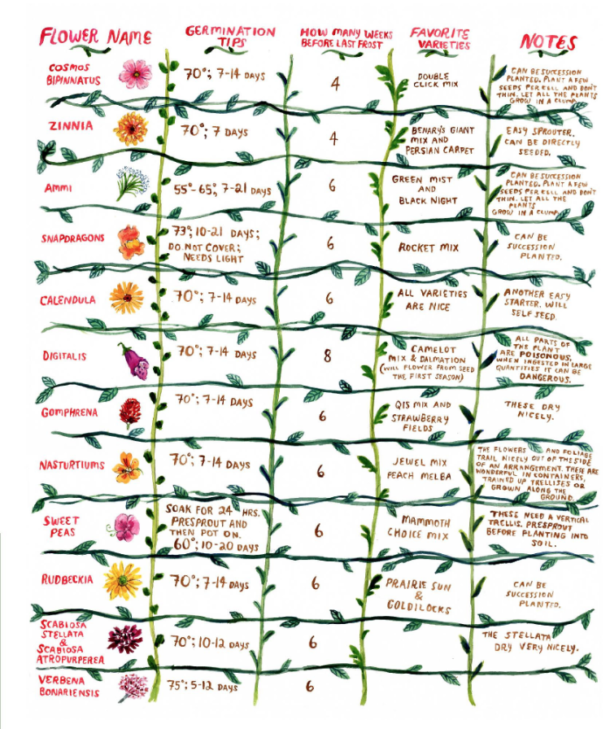 FLOWER NAME
GERMINATION
TIPS
HOW MANY WEEKS
BEFORE LAST FROST
FAVORITE
VARIETIES
NOTES
COSMOS
BIPINNATUS
70°; 7-14 DAYS
4
DOUBLE
CLICK MIX
CAN BE SUCCESSION
PLANTED. PLANT A FEW
SEEDS PER CELL AND DON'T
THIN. LET ALL THE PLANTS
GROW IN A CLUMP.
ZINNIA
70°; 7 DAYS
4
BENARY'S GIANT
MIX AND
PERSIAN CARPET
EASY SPROUTER.
CAN BE DIRECTLY
SEEDED.
AMMI
55°-65°, 7-21 DAYS
6
GREEN MIST
AND
BLACK NIGHT
CAN BE SUCCESSION
PLANTED. PLANT A FEW
SEEDS PER CELL AND DON'T
THIN. LET ALL THE
PLANTS
GROW IN A CLUMP.
SNAPDRAGONS
73°; 10-21 DAYS;
DO NOT COVER;
NEEDS LIGHT
6
ROCKET MIX
CAN BE
SUCCESSION
PLANTED.
CALENDULA
70°; 7-14 DAYS
6
ALL VARIETIES
ARE NICE
ANOTHER EASY
STARTER. WILL
SELF SEED.
DIGITALIS
70°; 7-14 DAYS
8
CAMELOT
MIX & DALMATION
(WILL FLOWER FROM SEED
THE FIRST SEASON)
ALL PARTS OF
THE PLANT
ARE POISONOUS,
WHEN INGESTED IN LARGE
QUANTITIES IT CAN BE
DANGEROUS.
GOMPHRENA
70°; 7-14 DAYS
6
QIS MIX AND
STRAWBERRY
FIELDS
THESE DRY
NICELY.
NASTURTIUMS
70°; 7-14 DAYS
6
JEWEL MIX
PEACH MELBA
THE FLOWERS AND FOLIAGE
TRAIL NICELY OUT OF THE SIDE
OF AN ARRANGEMENT. THEY ARE
WONDERFUL IN CONTAINERS,
TRAINED UP TRELLISES OR
GROWN ALONG THE
GROUND.
SWEET
PEAS
SOAK FOR 24 HRS.
PRESPROUT AND
THEN POT ON.
60°; 10-20 DAYS
6
MAMMOTH
CHOICE MIX
THESE NEED A VERTICAL
TRELLIS. PRESPROUT
BEFORE PLANTING INTO
SOIL.
RUDBECKIA
70°; 7-14 DAYS
6
PRAIRIE SUN
&
GOLDILOCKS
CAN BE
SUCCESSION
PLANTED.
SCABIOSA
STELLATA
&
SCABIOSA
ATROPURPEREA
70°; 10-12 DAYS
6
THE STELLATA
DRY VERY NICELY.
VERBENA
BONARIENSIS
75°; 5-12 DAYS
6